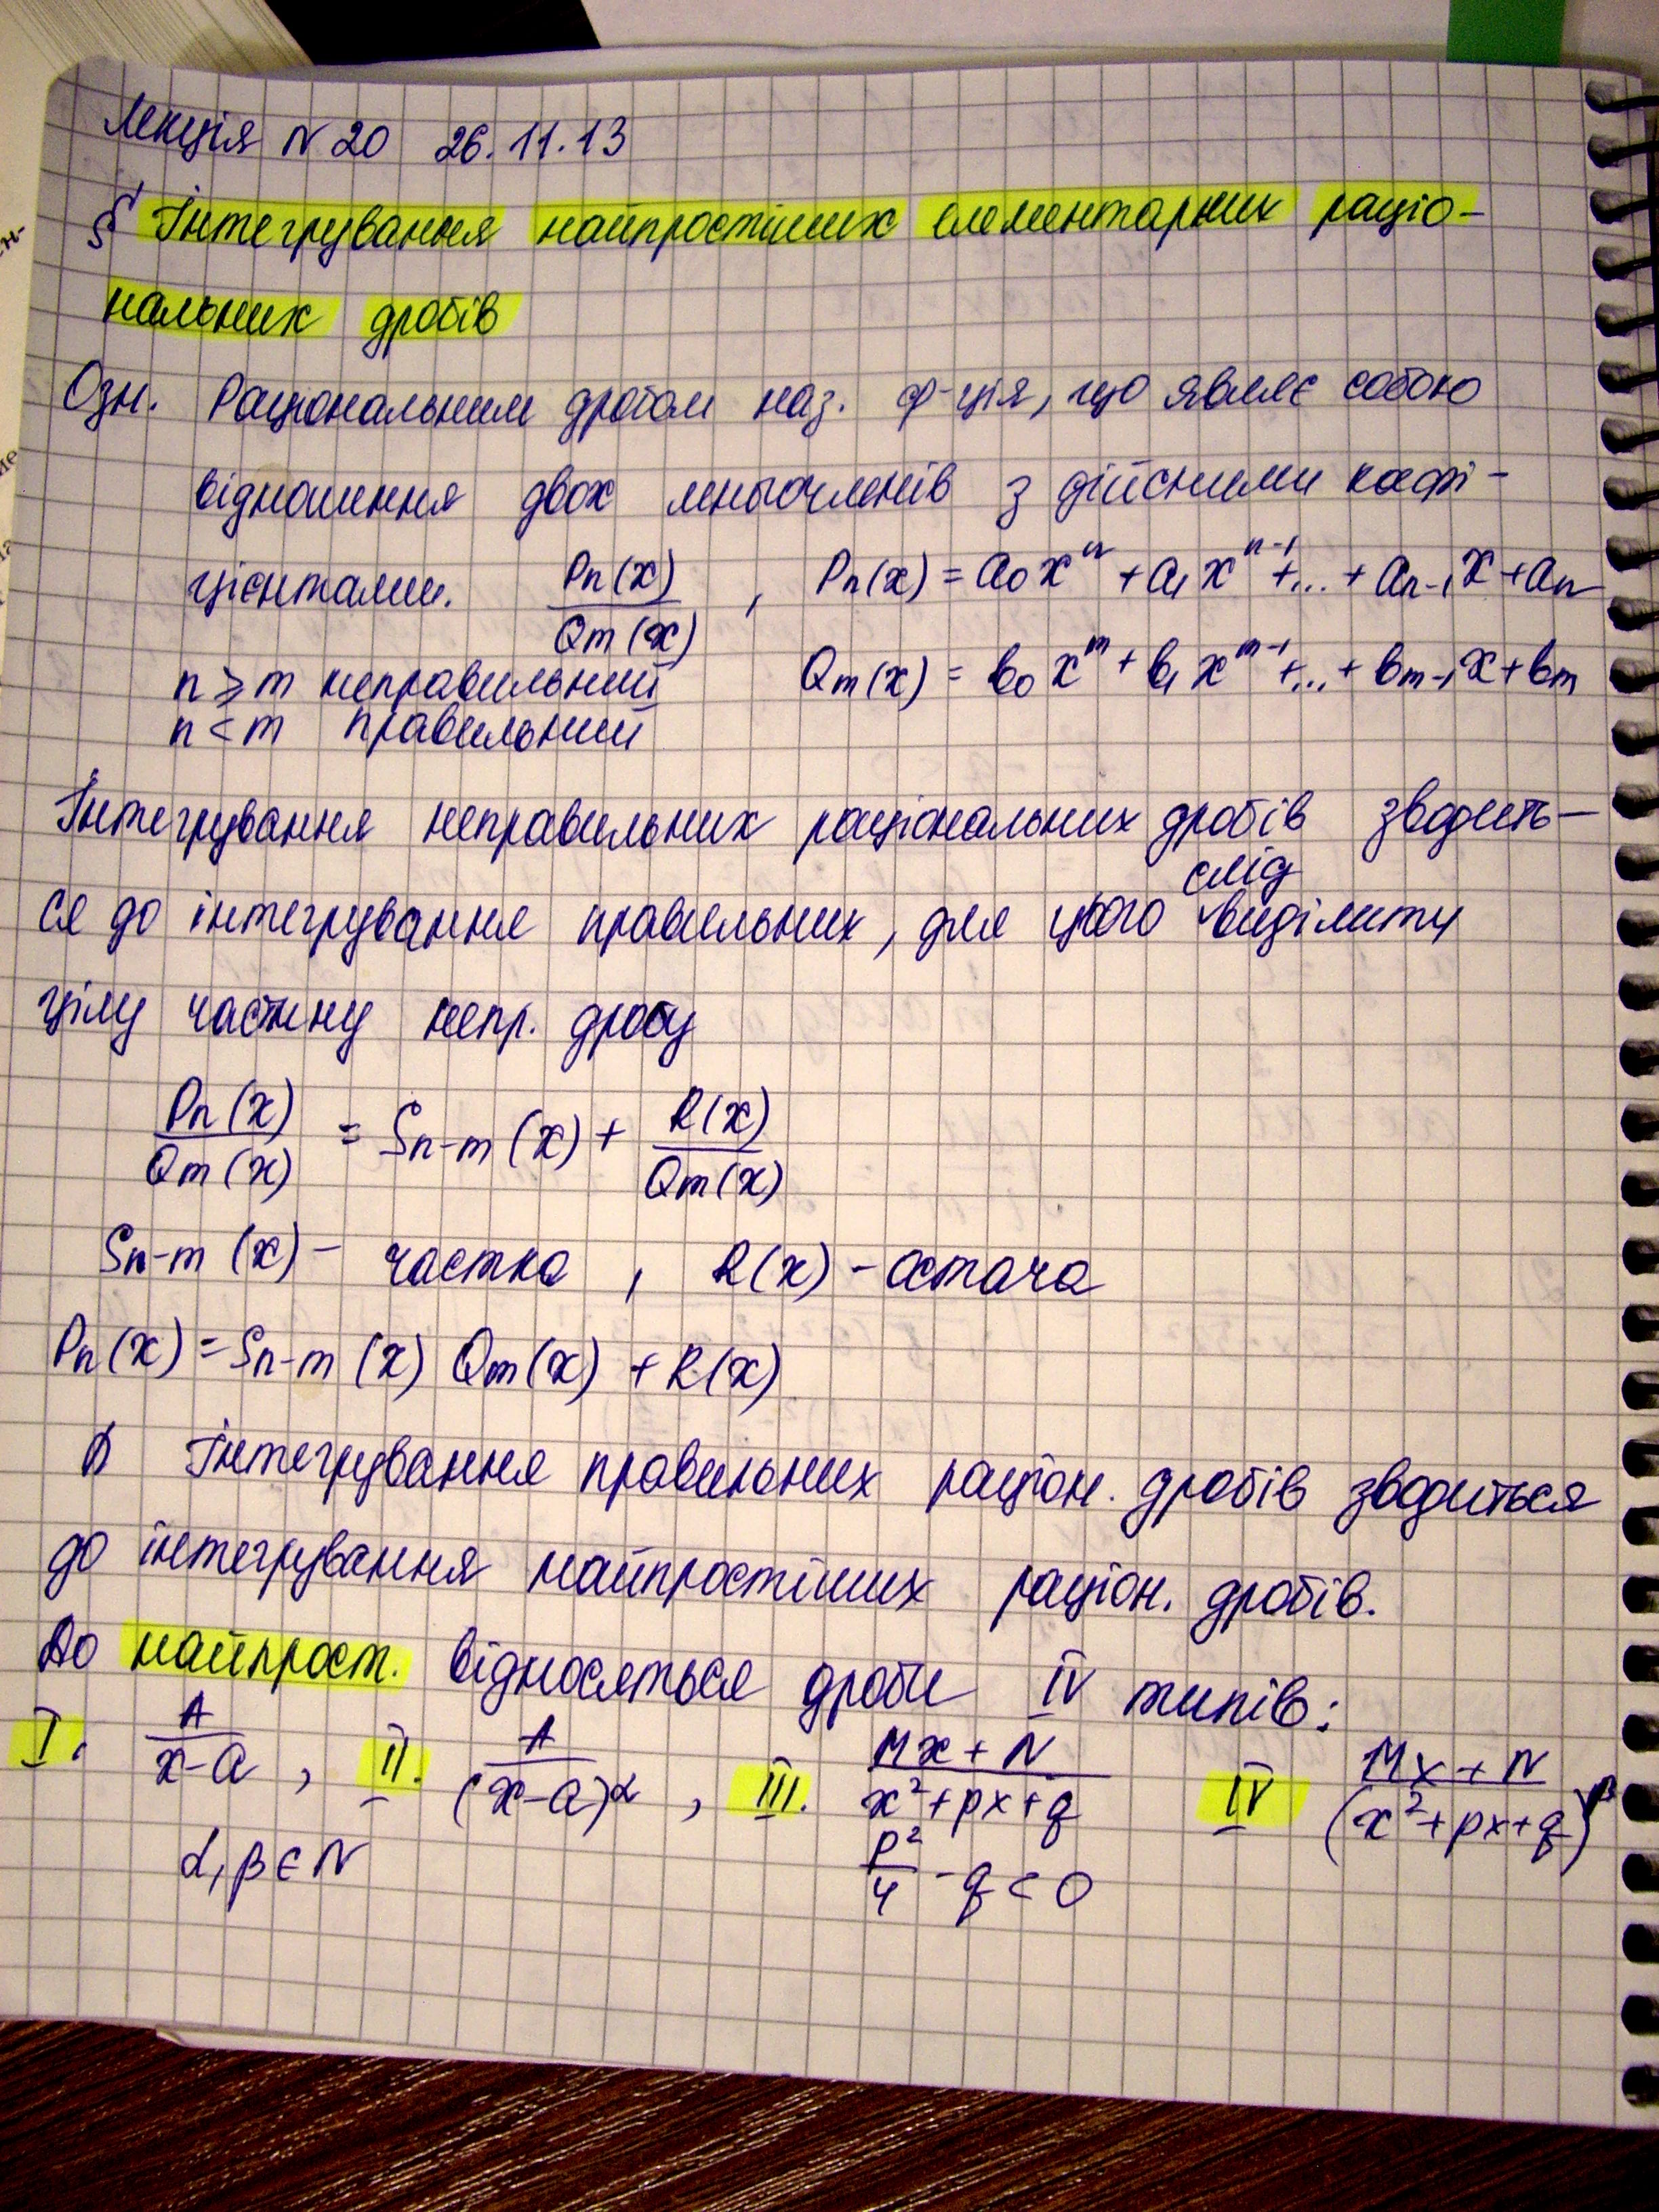 Лекція N 20 26.11.13
§ Інтегрування найпростіших елементарних раціо-
нальних дробів
Озн. Раціональним дробом наз. ф-ція, що являє собою
відношення двох многочленів з дійсними коефі-
цієнтами. Pn(x)/Qm(x) , Pn(x) = a₀xⁿ + a₁xⁿ⁻¹ +...+ an-1x + an
n ⩾ m неправильний Qm(x) = b₀xᵐ + b₁xᵐ⁻¹ +...+ bm-1x + bm
n < m правильний
Інтегрування неправильних раціональних дробів зводить-
слід
ся до інтегрування правильних, для цього виділити
цілу частину непр. дробу
Pn(x)/Qm(x) = Sn-m(x) + R(x)/Qm(x)
Sn-m(x) – частка , R(x) – остача
Pn(x) = Sn-m(x) Qm(x) + R(x)
Інтегрування правильних раціон. дробів зводиться
до інтегрування найпростіших раціон. дробів.
До найпрост. відносяться дроби IV типів:
I. A/(x-a) , II. A/(x-a)^α , III. (Mx+N)/(x²+px+q) IV (Mx+N)/(x²+px+q)^β
α, β ∈ N p²/4 - q < 0